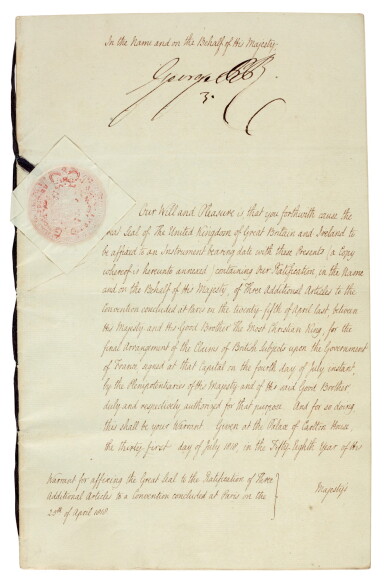 In the Name and on the Behalf of His Majesty.
George P R
Our Will and Pleasure is that you forthwith cause the
Great Seal of The United Kingdom of Great Britain and Ireland to
be affixed to an Instrument bearing date with these Presents, (a Copy
whereof is hereunto annexed) containing Our Ratification, in the Name
and on the Behalf of His Majesty, of Three Additional Articles to the
Convention concluded at Paris on the twenty-fifth of April last, between
His Majesty and His Good Brother The Most Christian King, for the
final Arrangement of the Claims of British Subjects upon the Government
of France, signed at that Capital on the fourth day of July instant,
by the Plenipotentiaries of His Majesty and of His said Good Brother
duly and respectively authorized for that purpose. And for so doing
this shall be your Warrant. Given at the Palace of Carlton House,
the thirty-first day of July 1818, in the Fifty-Eighth Year of His
Majesty's
Warrant for affixing the Great Seal to the Ratification of Three
Additional Articles to a Convention concluded at Paris on the
25th of April 1818